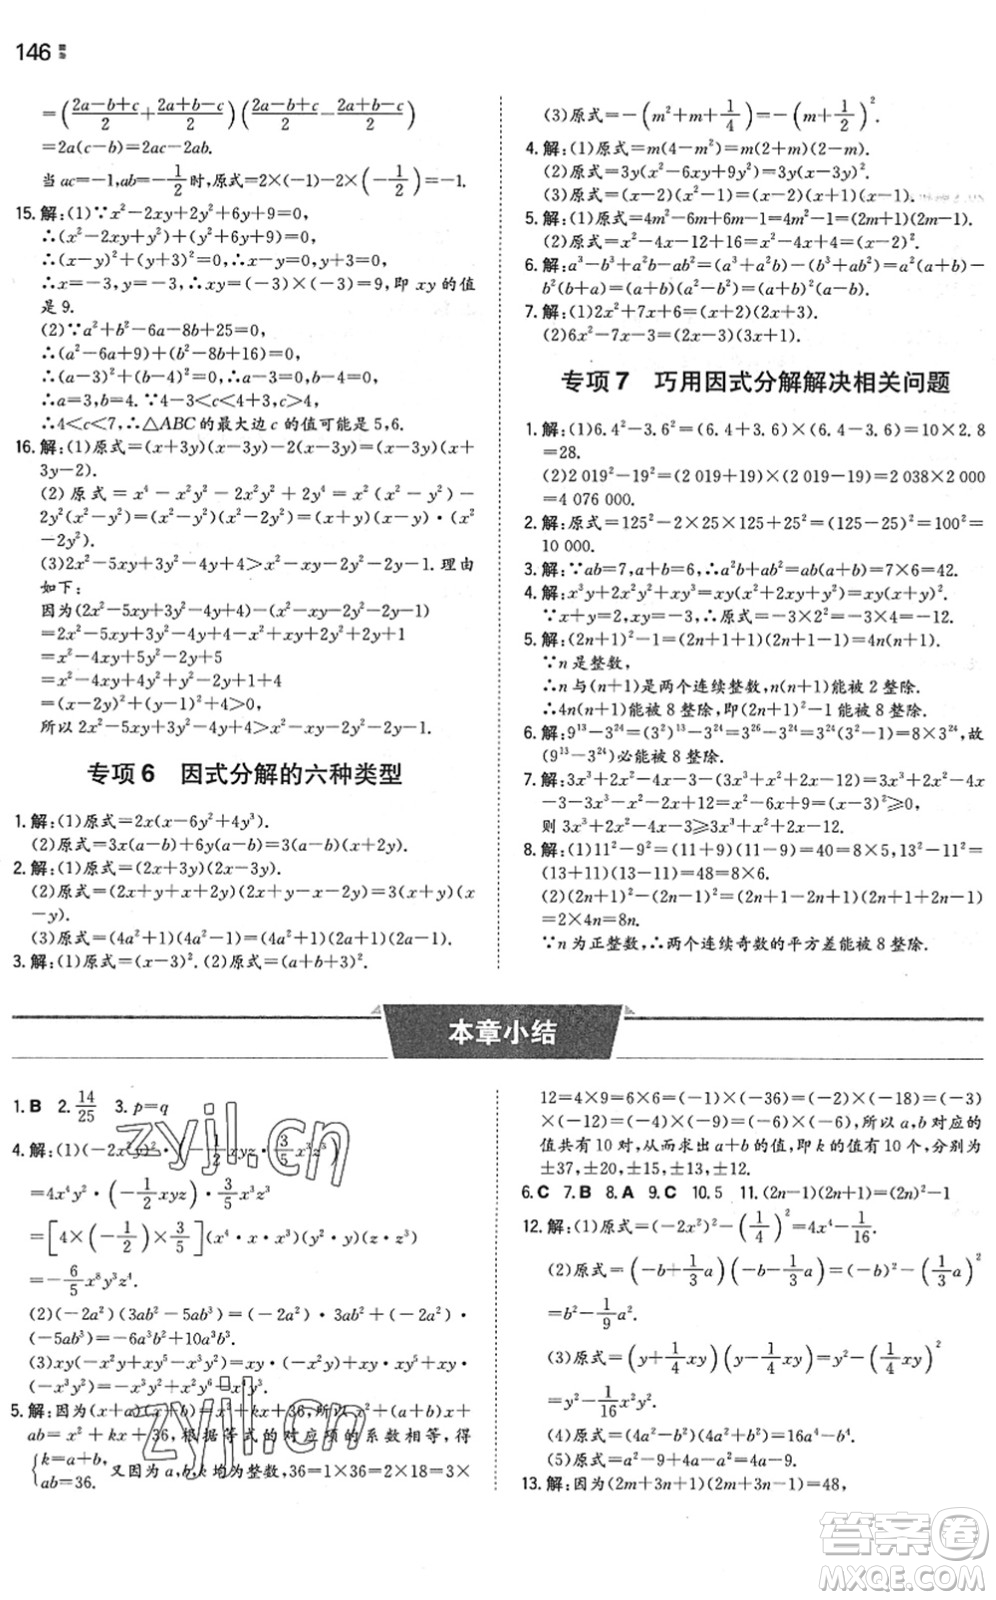 146
=((2a-b+c)/2+(2a+b-c)/2)((2a-b+c)/2-(2a+b-c)/2)
=2a(c-b)=2ac-2ab.
当 ac=-1,ab=-1/2时,原式=2×(-1)-2×(-1/2)=-1.
15. 解:(1)∵x²-2xy+2y²+6y+9=0,
∴(x²-2xy+y²)+(y²+6y+9)=0,
∴(x-y)²+(y+3)²=0,∴x-y=0,y+3=0,
∴x=-3,y=-3,∴xy=(-3)×(-3)=9,即 xy 的值
是 9.
(2)∵a²+b²-6a-8b+25=0,
∴(a²-6a+9)+(b²-8b+16)=0,
∴(a-3)²+(b-4)²=0,∴a-3=0,b-4=0,
∴a=3,b=4. ∵4-3<c<4+3,c≥4,
∴4≤c<7,∴△ABC 的最大边 c 的值可能是 5,6.
16. 解:(1)原式=(x+3y)(x-3y)-2(x-3y)=(x-3y)(x+
3y-2).
(2)原式=x⁴-x²y²-2x²y²+2y⁴=x²(x²-y²)-
2y²(x²-y²)=(x²-y²)(x²-2y²)=(x+y)(x-y)·(x²
-2y²).
(3)2x²-5xy+3y²-4y+4>x²-xy-y²-2y-1. 理由
如下:
因为(2x²-5xy+3y²-4y+4)-(x²-xy-y²-2y-1)
=2x²-5xy+3y²-4y+4-x²+xy+y²+2y+1
=x²-4xy+4y²-2y+1+4
=x²-4xy+4y²+y²-2y+1+4
=(x-2y)²+(y-1)²+4>0,
所以 2x²-5xy+3y²-4y+4>x²-xy-y²-2y-1.
专项 6 因式分解的六种类型
1. 解:(1)原式=2x(x-6y²+4y³).
(2)原式=3x(a-b)+6y(a-b)=3(a-b)(x+2y).
2. 解:(1)原式=(2x+3y)(2x-3y).
(2)原式=(2x+y+x+2y)(2x+y-x-2y)=3(x+y)(x
-y).
(3)原式=(4a²+1)(4a²-1)=(4a²+1)(2a+1)(2a-1).
3. 解:(1)原式=(x-3)². (2)原式=(a+b+3)².
(3)原式=-(m²+m+1/4)=-(m+1/2)².
4. 解:(1)原式=m(4-m²)=m(2+m)(2-m).
(2)原式=3y(x²-6xy+9y²)=3y(x-3y)².
(3)原式=(x-2)(x²-1)=(x-2)(x+1)(x-1).
5. 解:(1)原式=4m²-6m+6m-1=4m²-1=(2m+1)(2m-1).
(2)原式=x²-4-x-12+10=x²-x-6=(x-3)(x+2).
6. 解:a³-b³+a²b-ab²=(a³+a²b)-(b³+ab²)=a²(a+b)-
b²(b+a)=(a+b)(a²-b²)=(a+b)²(a-b).
7. 解:(1)2x²+7x+6=(x+2)(2x+3).
(2)6x²-7x-3=(2x-3)(3x+1).
专项 7 巧用因式分解解决相关问题
1. 解:(1)6.4²-3.6²=(6.4+3.6)×(6.4-3.6)=10×2.8
=28.
(2)2 019²-19²=(2 019+19)×(2 019-19)=2 038×2 000
=4 076 000.
2. 解:原式=125²-2×25×125+25²=(125-25)²=100²=
10 000.
3. 解:∵ab=7,a+b=6,∴a²b+ab²=ab(a+b)=7×6=42.
4. 解:x³y+2x²y²+xy³=xy(x²+2xy+y²)=xy(x+y)².
∵x+y=-2,xy=-3,∴原式=-3×2²=-3×4=-12.
5. 解:(2n+1)²-1=(2n+1+1)(2n+1-1)=4n(n+1).
∵n 是整数,
∴n 与(n+1)是两个连续整数,必能被 2 整除.
∴4n(n+1)能被 8 整除,即(2n+1)²-1 能被 8 整除.
6. 解:9¹³-3²⁴=(3²)¹³-3²⁴=3²⁶-3²⁴=(3²-1)×3²⁴=8×3²⁴,故
(9¹³-3²⁴)必能被 8 整除.
7. 解:3x³+x²-4x-3-(2x³+2x²+2x-12)=3x³+x²-4x
-3-2x³-2x²-2x+12=x³-x²-6x+9=(x-3)²≥0,
则 3x³+x²-4x-3≥2x³+2x²+2x-12.
8. 解:(1)11²-9²=(11+9)(11-9)=40=8×5,13²-11²=
(13+11)(13-11)=48=8×6.
(2)(2n+1)²-(2n-1)²=(2n+1+2n-1)(2n+1-2n+1)
=2×4n=8n.
∵n 为正整数,∴两个连续奇数的平方差能被 8 整除.
本章小结
1. B 2. 14/25 3. p=q
4. 解:(1)(-2x²y)²·(-1/2xyz)·(3/5x³z³)
=4x⁴y²·(-1/2xyz)·3/5x³z³
=[4×(-1/2)×3/5](x⁴·x·x³)(y²·y)(z·z³)
=-6/5x⁸y³z⁴.
(2)(-2a²)(3ab²-5ab³)=(-2a²)·3ab²+(-2a²)·
(-5ab³)=-6a³b²+10a³b³.
5. 解:因为(x+a)(x+b)=x²+kx+36,所以x²+(a+b)x+
ab=x²+kx+36,根据等式的对应项的系数相等,得
{k=a+b, ab=36. 又因为 a,b,k 均为整数,36=1×36=2×18=3×
12=4×9=6×6=(-1)×(-36)=(-2)×(-18)=(-3)
×(-12)=(-4)×(-9)=(-6)×(-6),所以 a,b 对应的
值共有 10 对,从而求出 a+b 的值,即 k 的值有 10 个,分别为
±37,±20,±15,±13,±12.
6. C 7. B 8. A 9. C 10. 5 11. (2n-1)(2n+1)=(2n)²-1
12. 解:(1)原式=(-2x²)²-(1/4)²=4x⁴-1/16.
(2)原式=(-b+1/3a)(-b-1/3a)=(-b)²-(1/3a)²
=b²-1/9a².
(3)原式=(y+1/4xy)(y-1/4xy)=y²-(1/4xy)²
=y²-1/16x²y².
(4)原式=(4a²-b²)(4a²+b²)=16a⁴-b⁴.
(5)原式=a²-9+4-a²=-5.
13. 解:因为(2m+3n+1)(2m+3n-1)=48,
zyjl.cn
zyjl.cn
答案圈
MXQE.COM